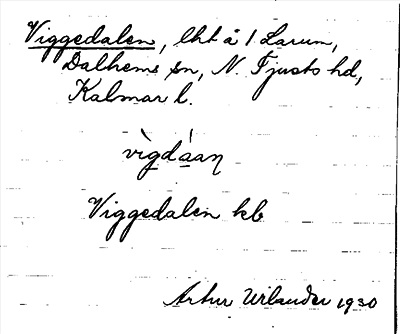 Viggedalen, lht å 1 Larum,
Dalhems sn, N. Tjusts hd,
Kalmar l.
vìgdáan
Viggedalen kb
Artur Urlander 1930